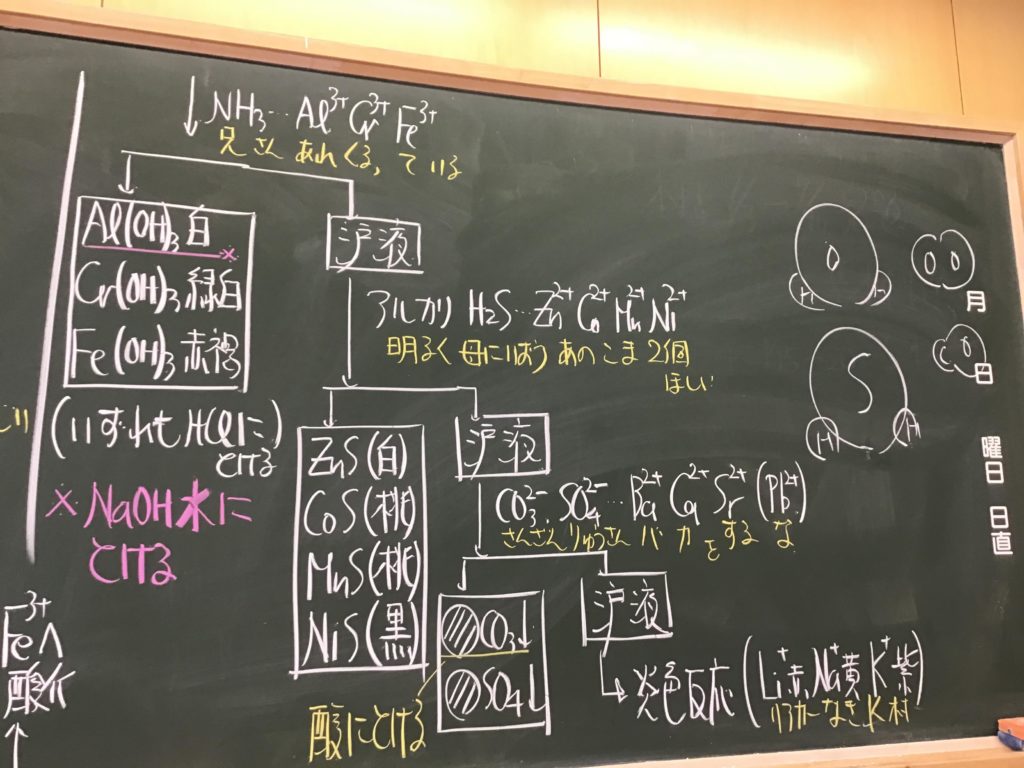 NH₃…Al³⁺ Cr³⁺ Fe³⁺
兄さん あれ くる, て いる
Al(OH)₃ 白 ×
Cr(OH)₃ 緑白
Fe(OH)₃ 赤褐
(いずれもHClに
とける)
× NaOH水に
とける
Fe³⁺へ
酸化
沪液
アルカリ H₂S…Zn²⁺ Co²⁺ Mn²⁺ Ni²⁺
明るく 母にいばう あの こま 2個
ほしい
ZnS(白)
CoS(桃)
MnS(桃)
NiS(黒)
沪液
CO₃²⁻, SO₄²⁻…Ba²⁺ Ca²⁺ Sr²⁺ (Pb²⁺)
さんさんりゅうさん バ カ を する な
CO₃↓
SO₄↓
酸にとける
沪液
炎色反応 (Li⁺赤, Na⁺黄 K⁺紫)
りアカー なき K村
O
H H
O O
S
H H
C O
月
日
曜日
日直